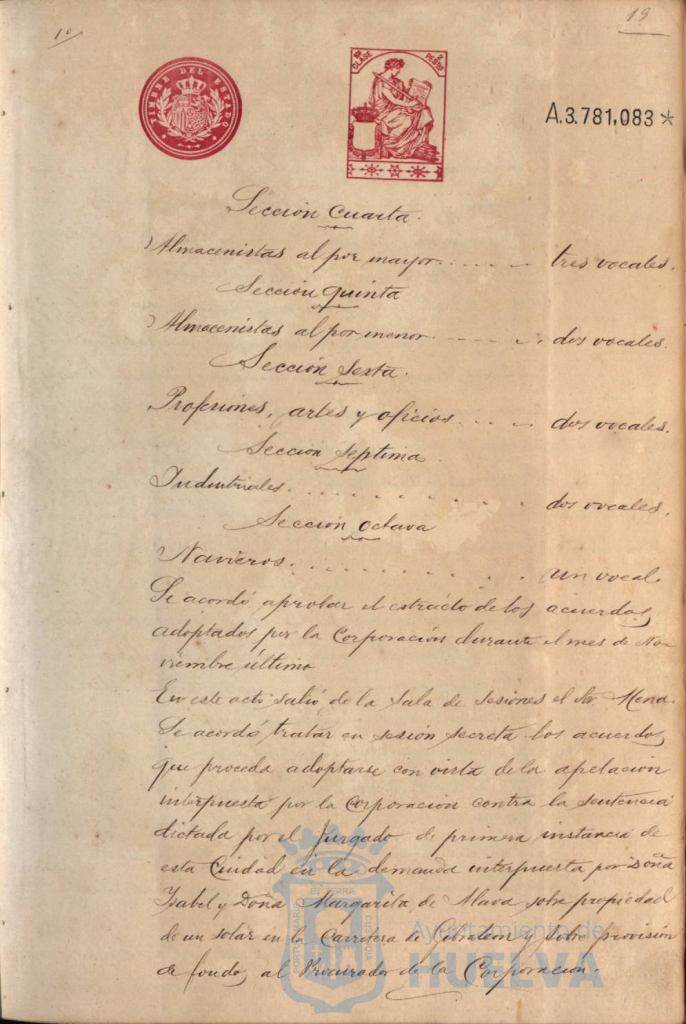 10
19
TIMBRE DEL ESTADO
CLASE
PESETAS
A.3.781,083*
Sección Cuarta.
Almacenistas al por mayor..... tres vocales.
Sección quinta
Almacenistas al por menor..... dos vocales.
Sección Sexta.
Profesiones, artes y oficios.... dos vocales.
Sección Septima
Industriales.......... dos vocales.
Sección Octava
Navieros.......... un vocal
Se acordó aprobar el extracto de los acuerdos
adoptados por la Corporación durante el mes de No-
viembre último
En este acto salió de la Sala de Sesiones el Sr. Mena.
Se acordó, tratar en sesión secreta los acuerdos
que proceda adoptarse con vista de la apelación
interpuesta por la Corporación contra la Sentencia
dictada por el Juzgado de primera instancia de
esta Ciudad en la demanda interpuesta por Doña
Isabel y Doña Margarita de Alava sobre propiedad
de un solar en la Carretera de Gibraleon y sobre provisión
de fondos al Procurador de la Corporación.
Ayuntamiento de
HUELVA